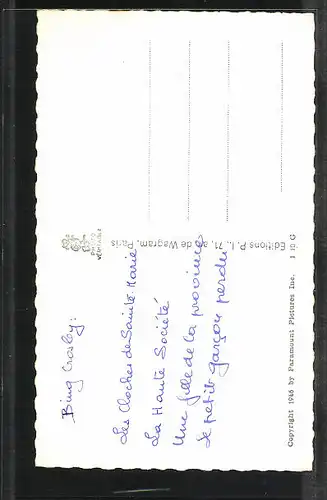 Bing Crosby:
Les Cloches de Sainte-Marie
La Haute Société
Une fille de la province
Le petit garçon perdu
PHOTO VÉRITABLE
Editions P. I., 71, de Wagram, Paris
Copyright 1946 by Paramount Pictures Inc.
G